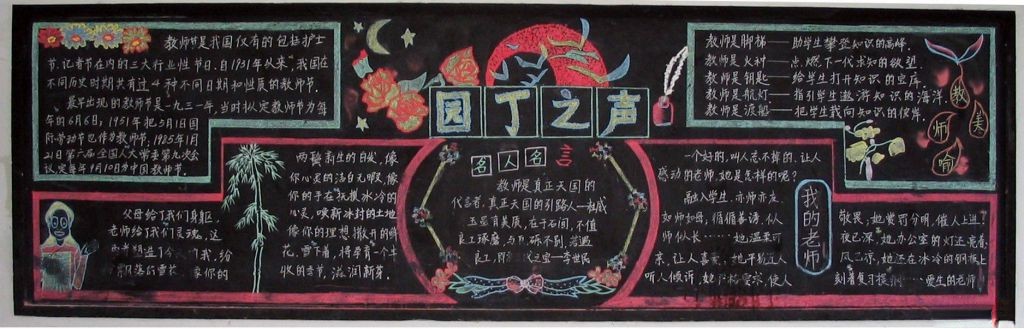 教师节是我国仅有的包括护士
节、记者节在内的三大行业性节日。自1931年以来,我国在
不同历史时期共有过4种不同日期和性质的教师节。
最早出现的教师节是一九三一年,当时拟定教师节为每
年的6月6日,1951年把5月1日国
际劳动节也作为教师节。1985年1月
21日第六届全国人大常委第九次会
议,定每年9月10日为中国教师节。
园丁之声
教师是脚梯——助学生攀登知识的高峰。
教师是火材——点燃下一代求知的欲望。
教师是钥匙——给学生打开知识的宝库。
教师是航灯——指引学生遨游知识的海洋。
教师是渡船——把学生载向知识的彼岸。
教师美喻
父母给了我们身躯,
老师给了我们灵魂,这
我,纷
的雪花,像你的
两鬓新生的白发,像
你心灵的洁白无暇,像
你的手在抚摸冰冷的
心灵,唤新冰封的土地
像你的理想撒开的鲜
花。雪下着,将孕育一个丰
收的季节,滋润新芽。
名人名言
教师是真正天国的
代言者,真正天国的引路人
玉虽有美质,在于石间,不值
良工琢磨,与瓦砾不别,若遇
良工,即为 代之宝——李世民
我的老师
一个好的,叫人忘不掉的,让人
感动的老师,她是怎样的呢?
融入学生,亦师亦友,
如师如母,循循善诱,似人
师似人长……她温柔可
亲,让人喜爱,她平易近人
听人倾诉,她 格要求,使人
敬畏,她赏罚分明,催人上进,
夜已深,她办公室的灯还亮着,
风已凉,她还在冰冷的钢板上
刻着复习提纲……爱生的老师